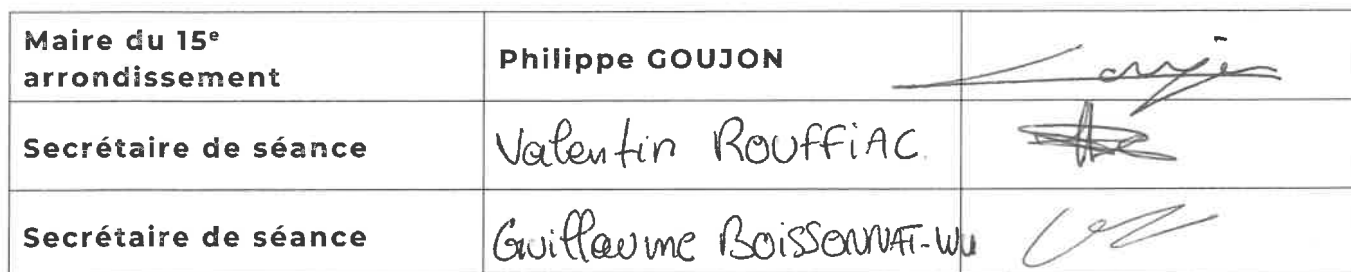 Maire du 15e
arrondissement
Philippe GOUJON
Secrétaire de séance
Valentin ROUFFIAC.
Secrétaire de séance
Guillaume BOISSONNAT-Wu